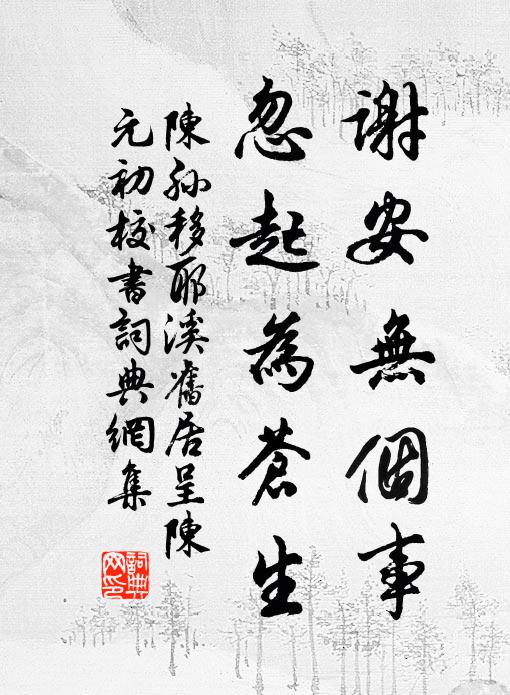 謝安無個事
忽起為蒼生
陳孫移耶溪舊居呈陳
元初校書詞典網集
詞典網印